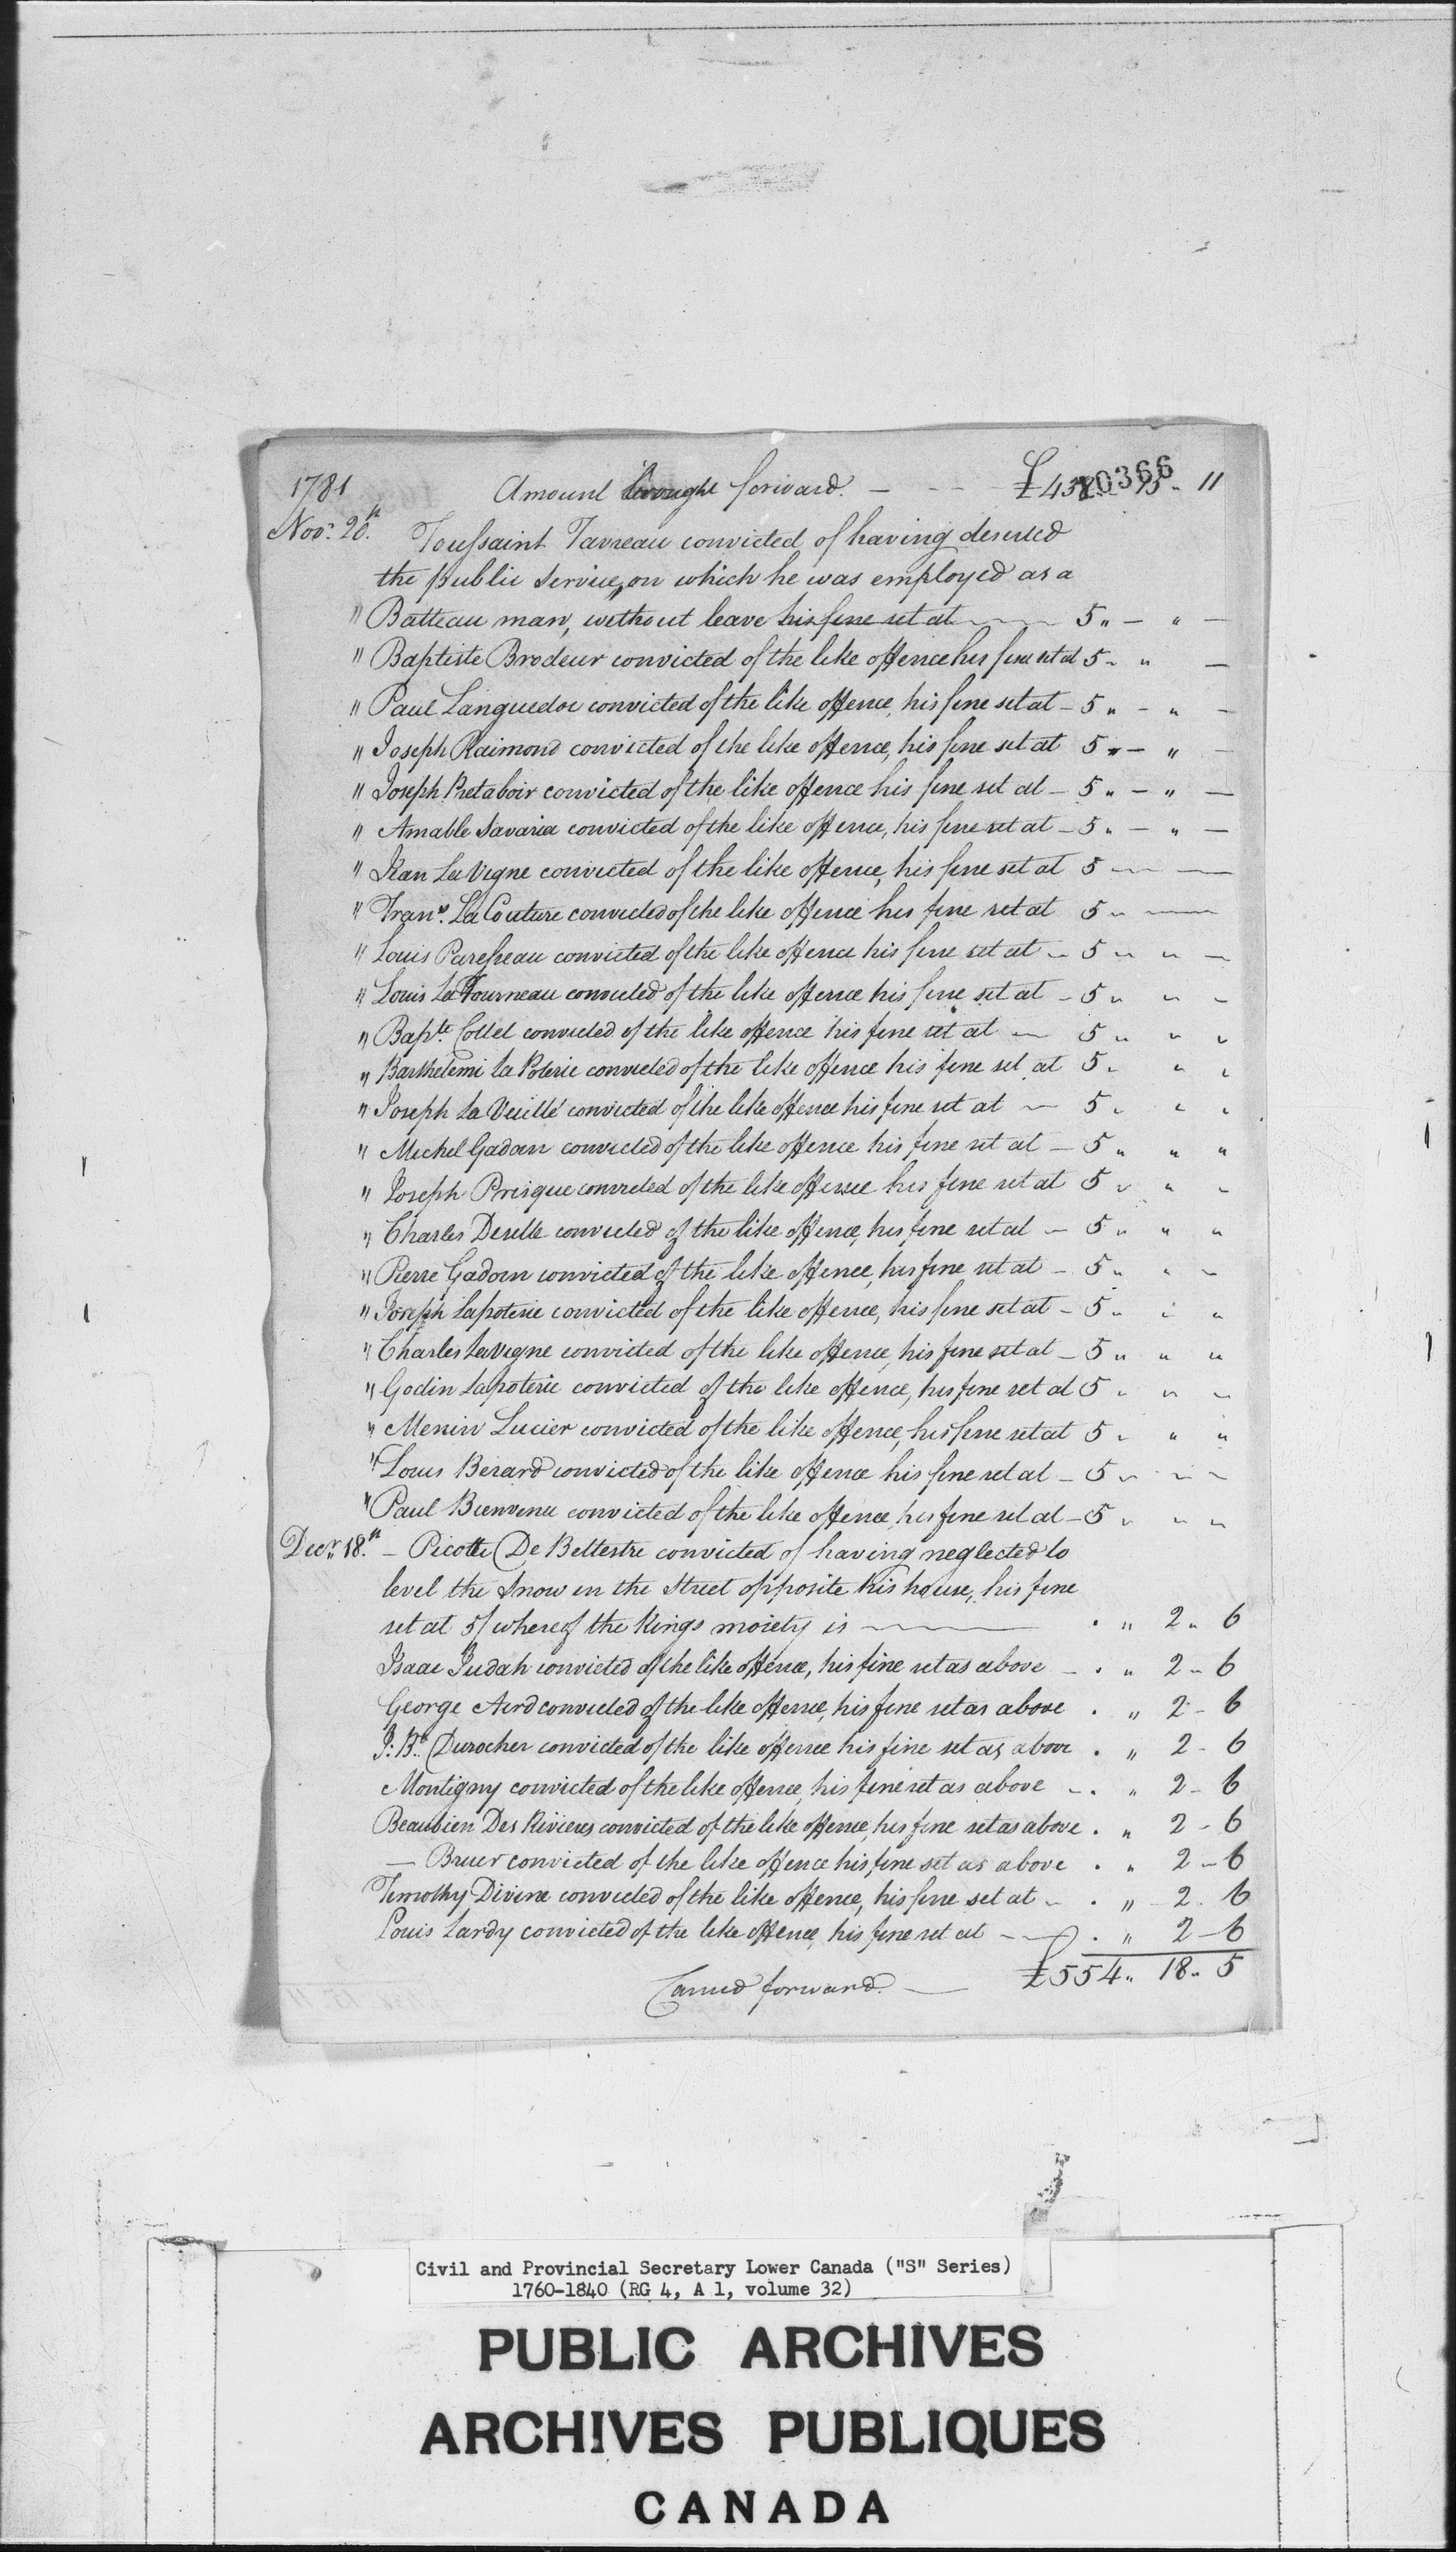 10366
1781 Amount brought forward. — £ 438 " 15 " 11
Novr. 20th. Toussaint Tavreau convicted of having deserted
the public Service, on which he was employed as a
" Batteau man, without leave his fine set at 5 " — " —
" Baptiste Brodeur convicted of the like offence his fine set at 5 " " —
" Paul Languedoc convicted of the like offence, his fine set at — 5 " — " —
" Joseph Raimond convicted of the like offence, his fine set at 5 " — " —
" Joseph Pretaboir convicted of the like offence his fine set at — 5 " — " —
" Amable Savaria convicted of the like offence, his fine set at — 5 " — " —
" Jean La Vigne convicted of the like offence, his fine set at 5 — —
" Frans. La Couture convicted of the like offence his fine set at 5 " —
" Louis Paresseau convicted of the like offence his fine set at — 5 " " —
" Louis La Fourneau convicted of the like offence his fine set at — 5 " " —
" Bapte. Collet convicted of the like offence his fine set at — 5 " " "
" Barthelemi La Poterie convicted of the like offence his fine set at 5 " " "
" Joseph La Veillé convicted of the like offence his fine set at — 5 " " "
" Michel Gadoin convicted of the like offence his fine set at — 5 " " "
" Joseph Prisque convicted of the like offence his fine set at 5 " " "
" Charles Deselle convicted of the like offence, his fine set at — 5 " " "
" Pierre Gadoin convicted of the like offence, his fine set at — 5 " " —
" Joseph Lapoterie convicted of the like offence, his fine set at — 5 " " "
" Charles LaVigne convicted of the like offence, his fine set at — 5 " " "
" Godin Lapoterie convicted of the like offence, his fine set at 5 " " "
" Menin Lucier convicted of the like offence, his fine set at 5 " " "
" Louis Berard convicted of the like offence his fine set at — 5 " " "
" Paul Bienvenu convicted of the like offence, his fine set at — 5 " " "
Decr. 18th. — Picotte De Bellestre convicted of having neglected to
level the Snow in the Street opposite his house, his fine
set at 5/ whereof the Kings moiety is — . " 2 " 6
Isaac Judah convicted of the like offence, his fine set as above — . " 2 " 6
George Aird convicted of the like offence, his fine set as above . " 2 - 6
J: Bte. Durocher convicted of the like offence his fine set as above . " 2 - 6
Montigny convicted of the like offence, his fine set as above — . " 2 - 6
Beaubien Des Rivieres convicted of the like offence, his fine set as above . " 2 - 6
— Bruer convicted of the like offence his fine set as above . " 2 - 6
Timothy Divine convicted of the like offence, his fine set at — . " 2 . 6
Louis Lardy convicted of the like offence, his fine set at — . " 2 - 6
Carried forward. — £ 554 " 18 " 5
Civil and Provincial Secretary Lower Canada ("S" Series)
1760-1840 (RG 4, A 1, volume 32)
PUBLIC ARCHIVES
ARCHIVES PUBLIQUES
CANADA